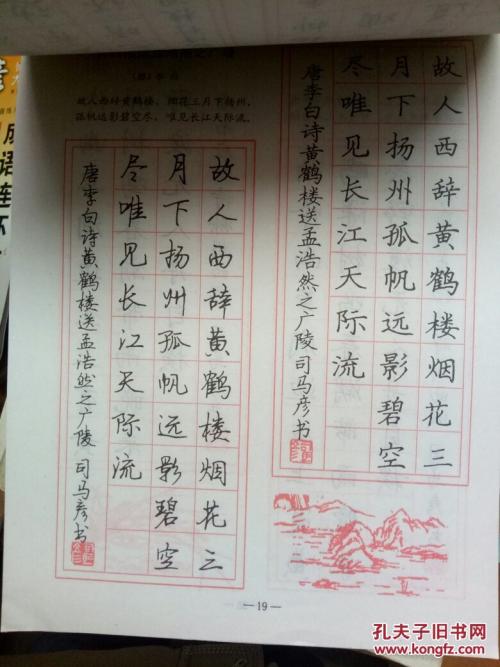 故人西辞黄鹤楼，烟花三月下扬州。
孤帆远影碧空尽，唯见长江天际流。
故人西辞黄鹤楼烟花三
月下扬州孤帆远影碧空
尽唯见长江天际流
唐李白诗黄鹤楼送孟浩然之广陵司马彦书
故人西辞黄鹤楼烟花三
月下扬州孤帆远影碧空
尽唯见长江天际流
唐李白诗黄鹤楼送孟浩然之广陵 司马彦书
—19—
成语连环
孔夫子旧书网
www.kongfz.com